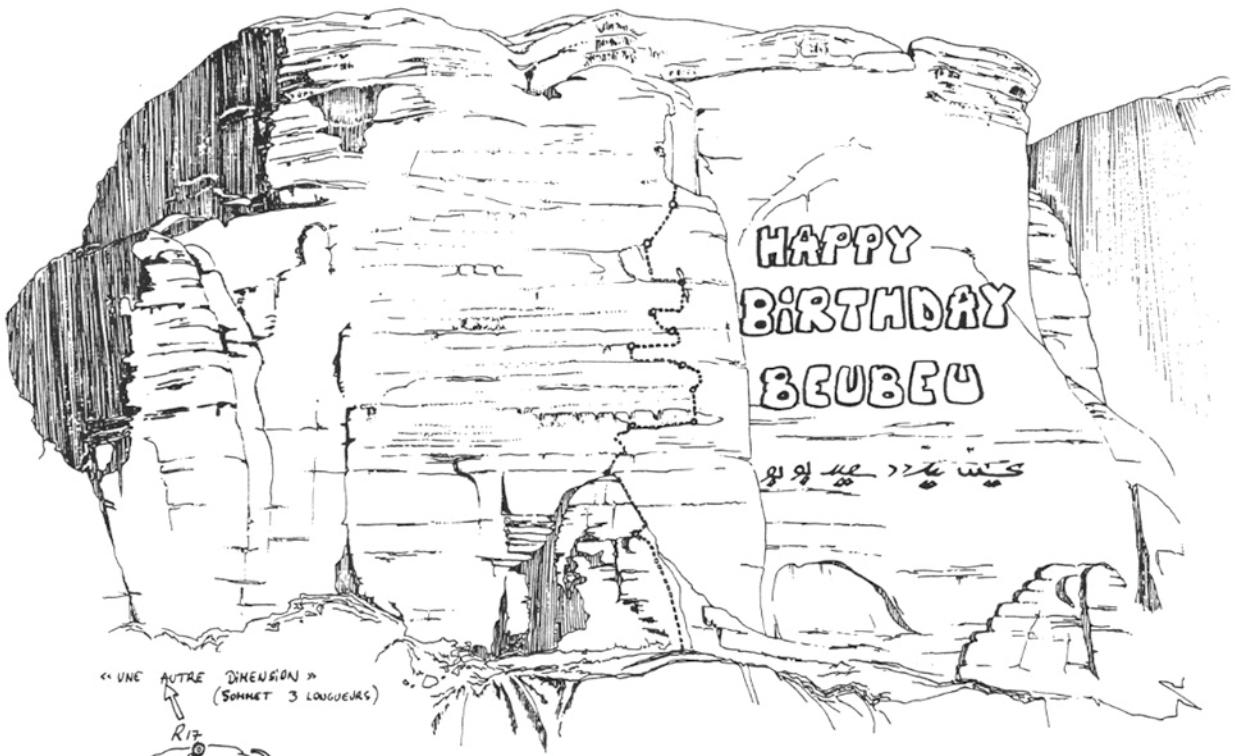 HAPPY
BIRTHDAY
BEUBEU
« UNE AUTRE DIMENSION »
(SOMMET 3 LONGUEURS)
R17